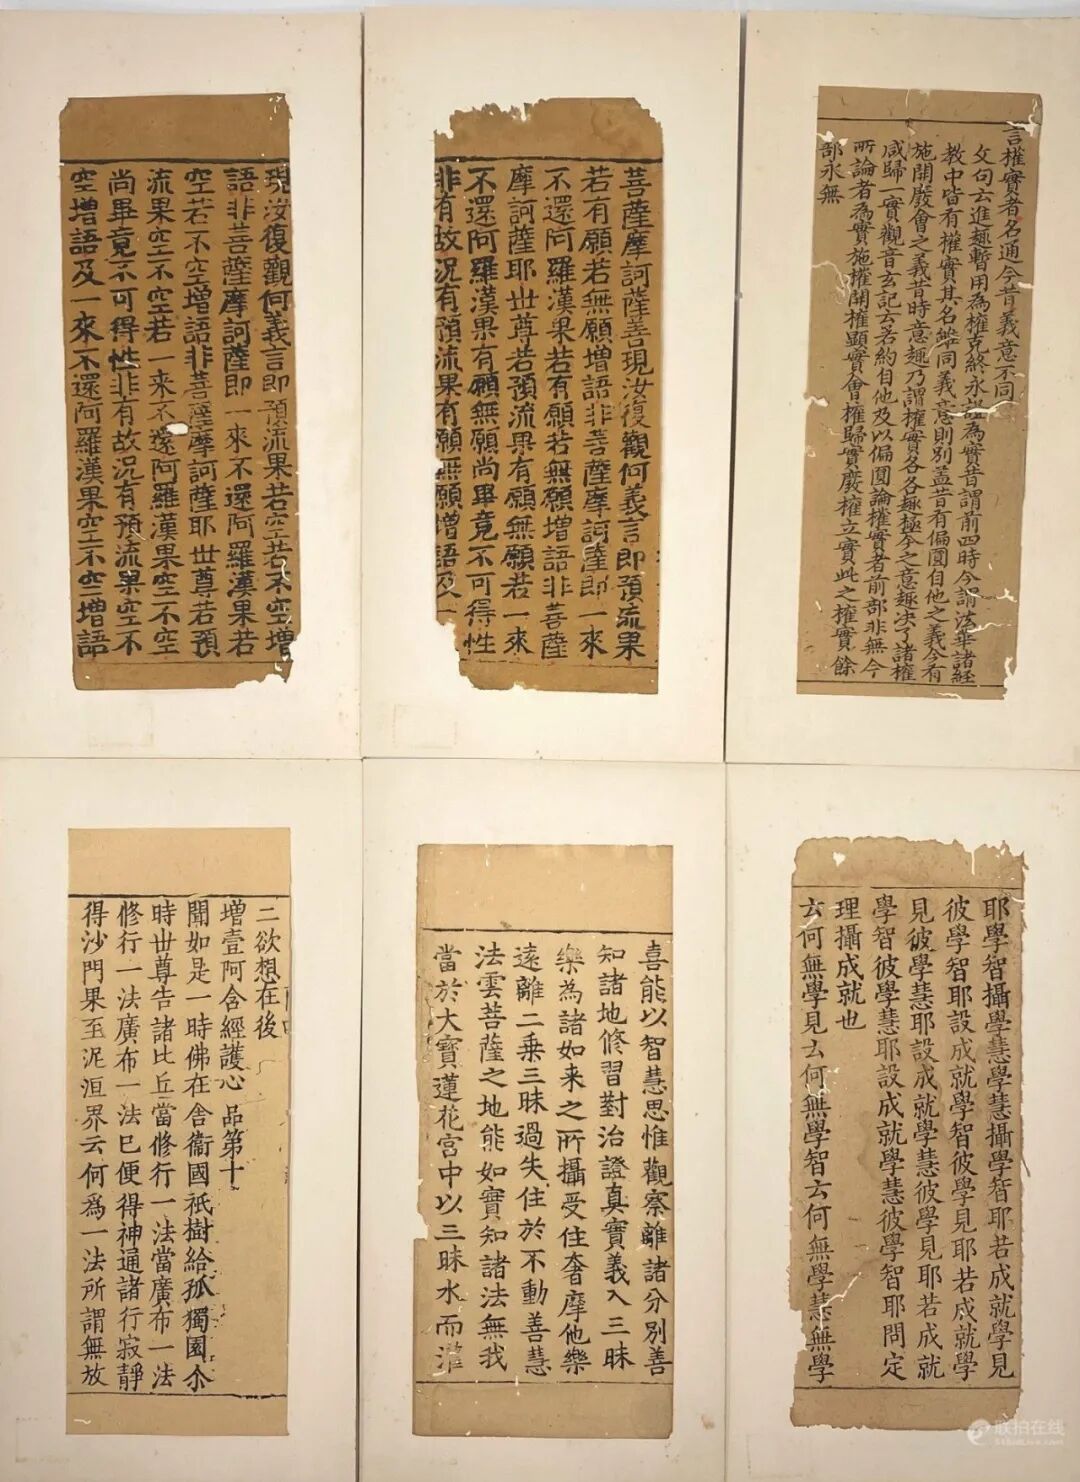 現汝復觀何義言即預流果若空若不空增
語非菩薩摩訶薩即一來不還阿羅漢果若
空若不空增語非菩薩摩訶薩耶世尊若預
流果空不空若一來不還阿羅漢果空不空
尚畢竟不可得性非有故況有預流果空不
空增語及一來不還阿羅漢果空不空增語
菩薩摩訶薩善現汝復觀何義言即預流果
若有願若無願增語非菩薩摩訶薩即一來
不還阿羅漢果若有願若無願增語非菩薩
摩訶薩耶世尊若預流果有願無願若一來
不還阿羅漢果有願無願尚畢竟不可得性
非有故況有預流果有願無願增語及一
言權實者名通今昔義意不同
文句云進趣暫用為權克終永證為實昔謂前四時今謂法華諸經
教中皆有權實其名雖同義意則別蓋昔有偏圓自他之義今有
施開廢會之義昔時意趣乃謂權實各各趣極今之意趣決了諸權
咸歸一實觀音玄記云若約自他及以偏圓論權實者前部非無今
所論者為實施權開權顯實會權歸實廢權立實此之權實餘
部永無
二欲想在後
增壹阿含經護心品第十
聞如是一時佛在舍衞國祇樹給孤獨園尒
時世尊告諸比丘當修行一法當廣布一法
修行一法廣布一法已便得神通諸行寂靜
得沙門果至泥洹界云何爲一法所謂無放
喜能以智慧思惟觀察離諸分別善
知諸地修習對治證真實義入三昧
樂為諸如来之所攝受住奢摩他樂
遠離二乗三昧過失住於不動善慧
法雲菩薩之地能如實知諸法無我
當於大寶蓮花宮中以三昧水而灌
耶學智攝學慧學慧攝學智耶若成就學見
彼學智耶設成就學智彼學見耶若成就學
見彼學慧耶設成就學慧彼學見耶若成就
學智彼學慧耶設成就學慧彼學智耶問定
理攝成就也
云何無學見云何無學智云何無學慧無學
联拍在线